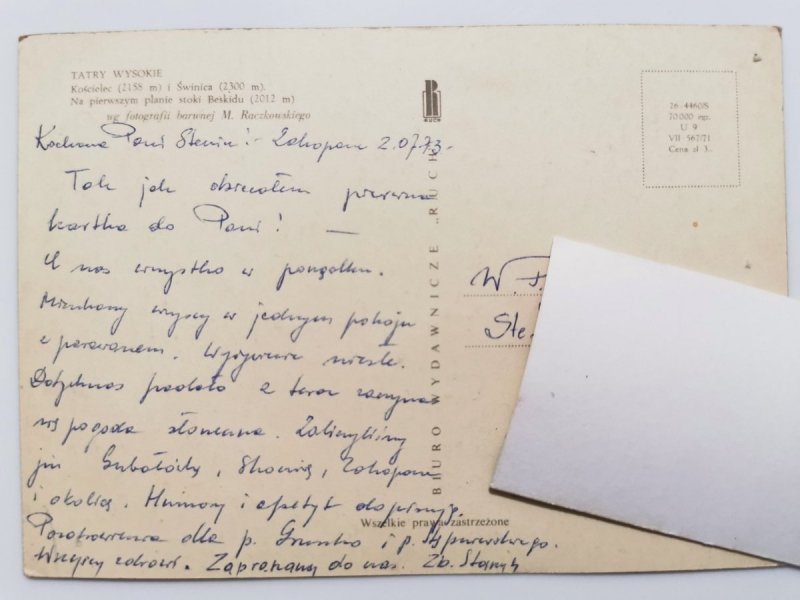 TATRY WYSOKIE
Kościelec (2158 m) i Świnica (2300 m).
Na pierwszym planie stoki Beskidu (2012 m)
wg fotografii barwnej M. Raczkowskiego
RUCH
26-4460/S
70 000 egz.
U 9
VII 567/71
Cena zł 3,-
BIURO WYDAWNICZE „RUCH
Wszelkie prawa zastrzeżone
Kochana Pani Zakopane 2.07.73-
Tak jak obiecałem pierwsza
kartka do Pani! —
U nas wszystko w porządku.
Mieszkamy wszyscy w jednym pokoju
z parawanem. Wyżywienie niezłe.
Dotychczas padało a teraz zaczyna
się pogoda słoneczna. Zaliczyliśmy
już Gubałówkę, Skocznię, Zakopane
i okolicę. Humory i apetyt dopisują.
Pozdrowienia dla p. i p.
Wszyscy zdrowi. Zapraszamy do nas. Zb.
W. P.
Ste